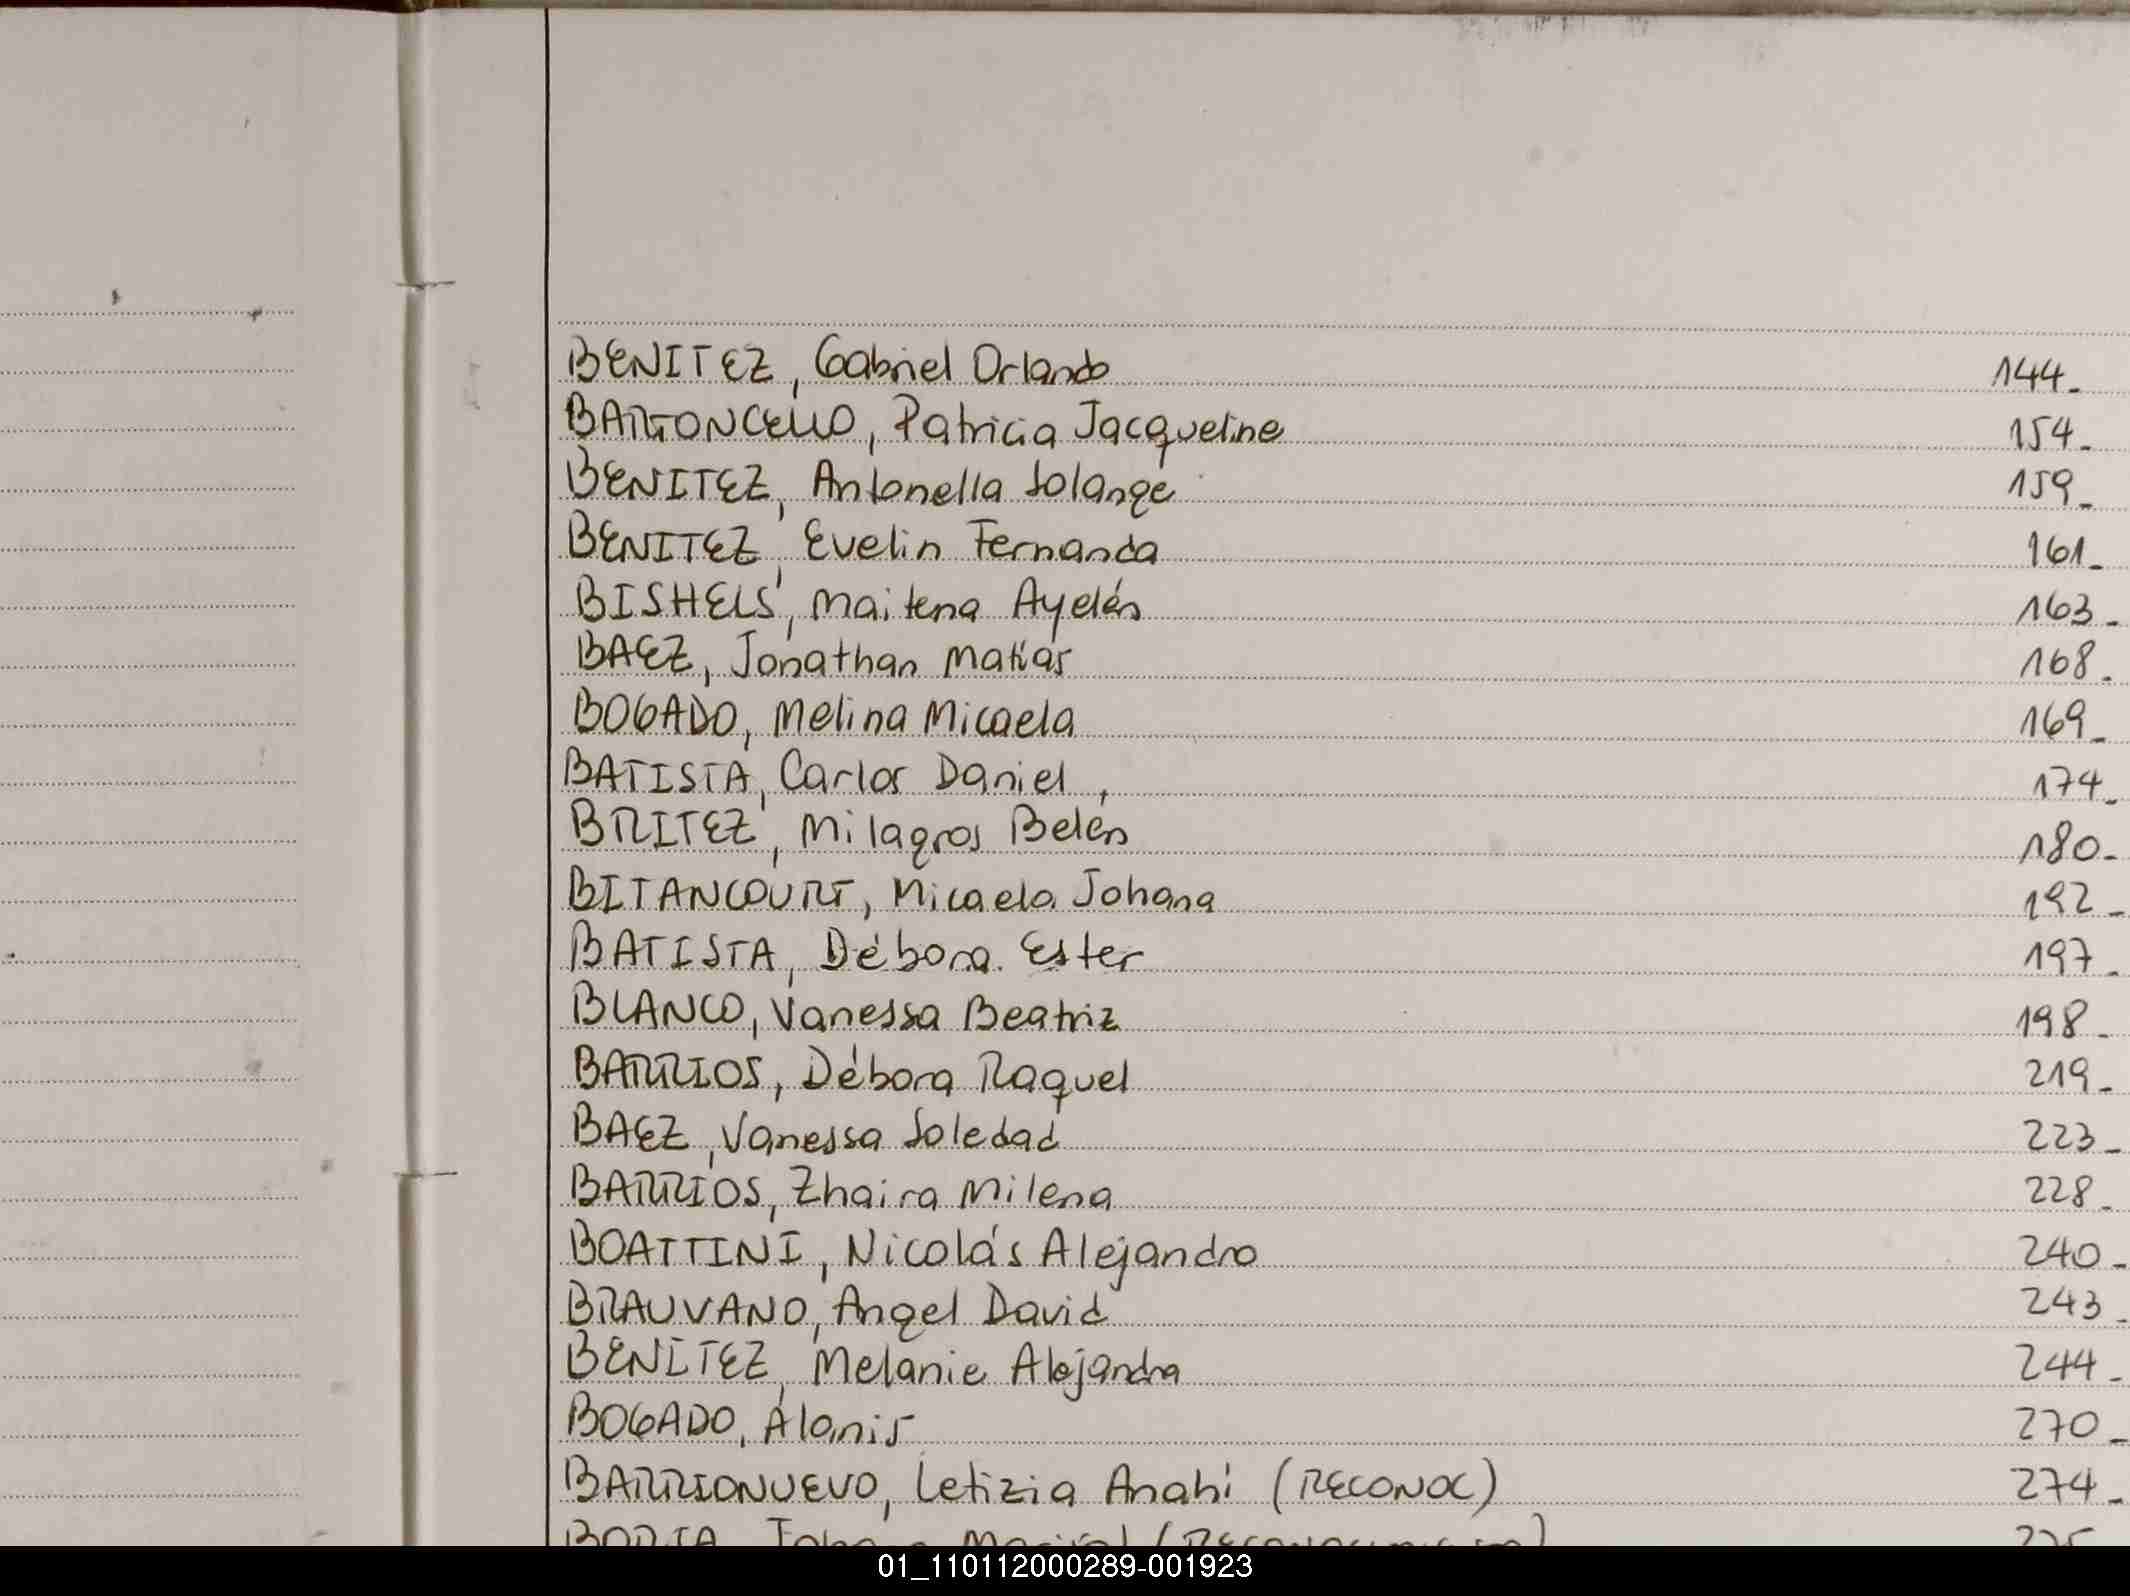 BENITEZ, Gabriel Orlando 144-
BARTONCELLO, Patricia Jacqueline 154-
BENITEZ, Antonella Solange 159-
BENITEZ, Evelin Fernanda 161-
BISHELS, Maitena Ayelén 163-
BAEZ, Jonathan Matías 168-
BOGADO, Melina Micaela 169-
BATISTA, Carlos Daniel, 174-
BRITEZ, Milagros Belén 180-
BITANCOURT, Micaela Johana 192-
BATISTA, Débora Ester 197-
BLANCO, Vanessa Beatriz 198-
BARRIOS, Débora Raquel 219-
BAEZ, Vanessa Soledad 223-
BARRIOS, Zhaira Milena 228-
BOATTINI, Nicolás Alejandro 240-
BRAUVANO, Angel David 243-
BENITEZ, Melanie Alejandra 244-
BOGADO, Alanis 270-
BARRIONUEVO, Letizia Anahí (RECONOC) 274-
01_110112000289-001923